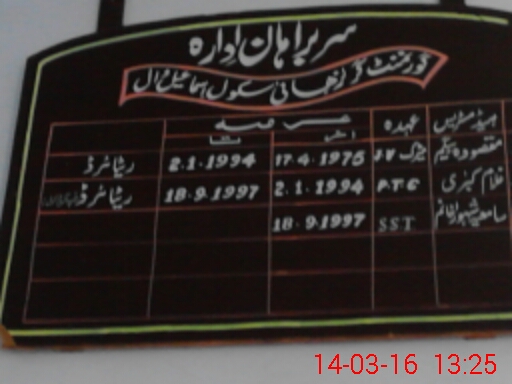 سربراہان ادارہ
گورنمنٹ گرلز ہائی سکول اسماعیل
ہیڈمسٹریس عہدہ عرصہ
از تا
مقصودہ بیگم میٹرک JV 17.4.1975 2.1.1994 ریٹائرڈ
غلام کبریٰ P.T.C 2.1.1994 18.9.1997 ریٹائرڈ
SST 18.9.1997
14-03-16 13:25